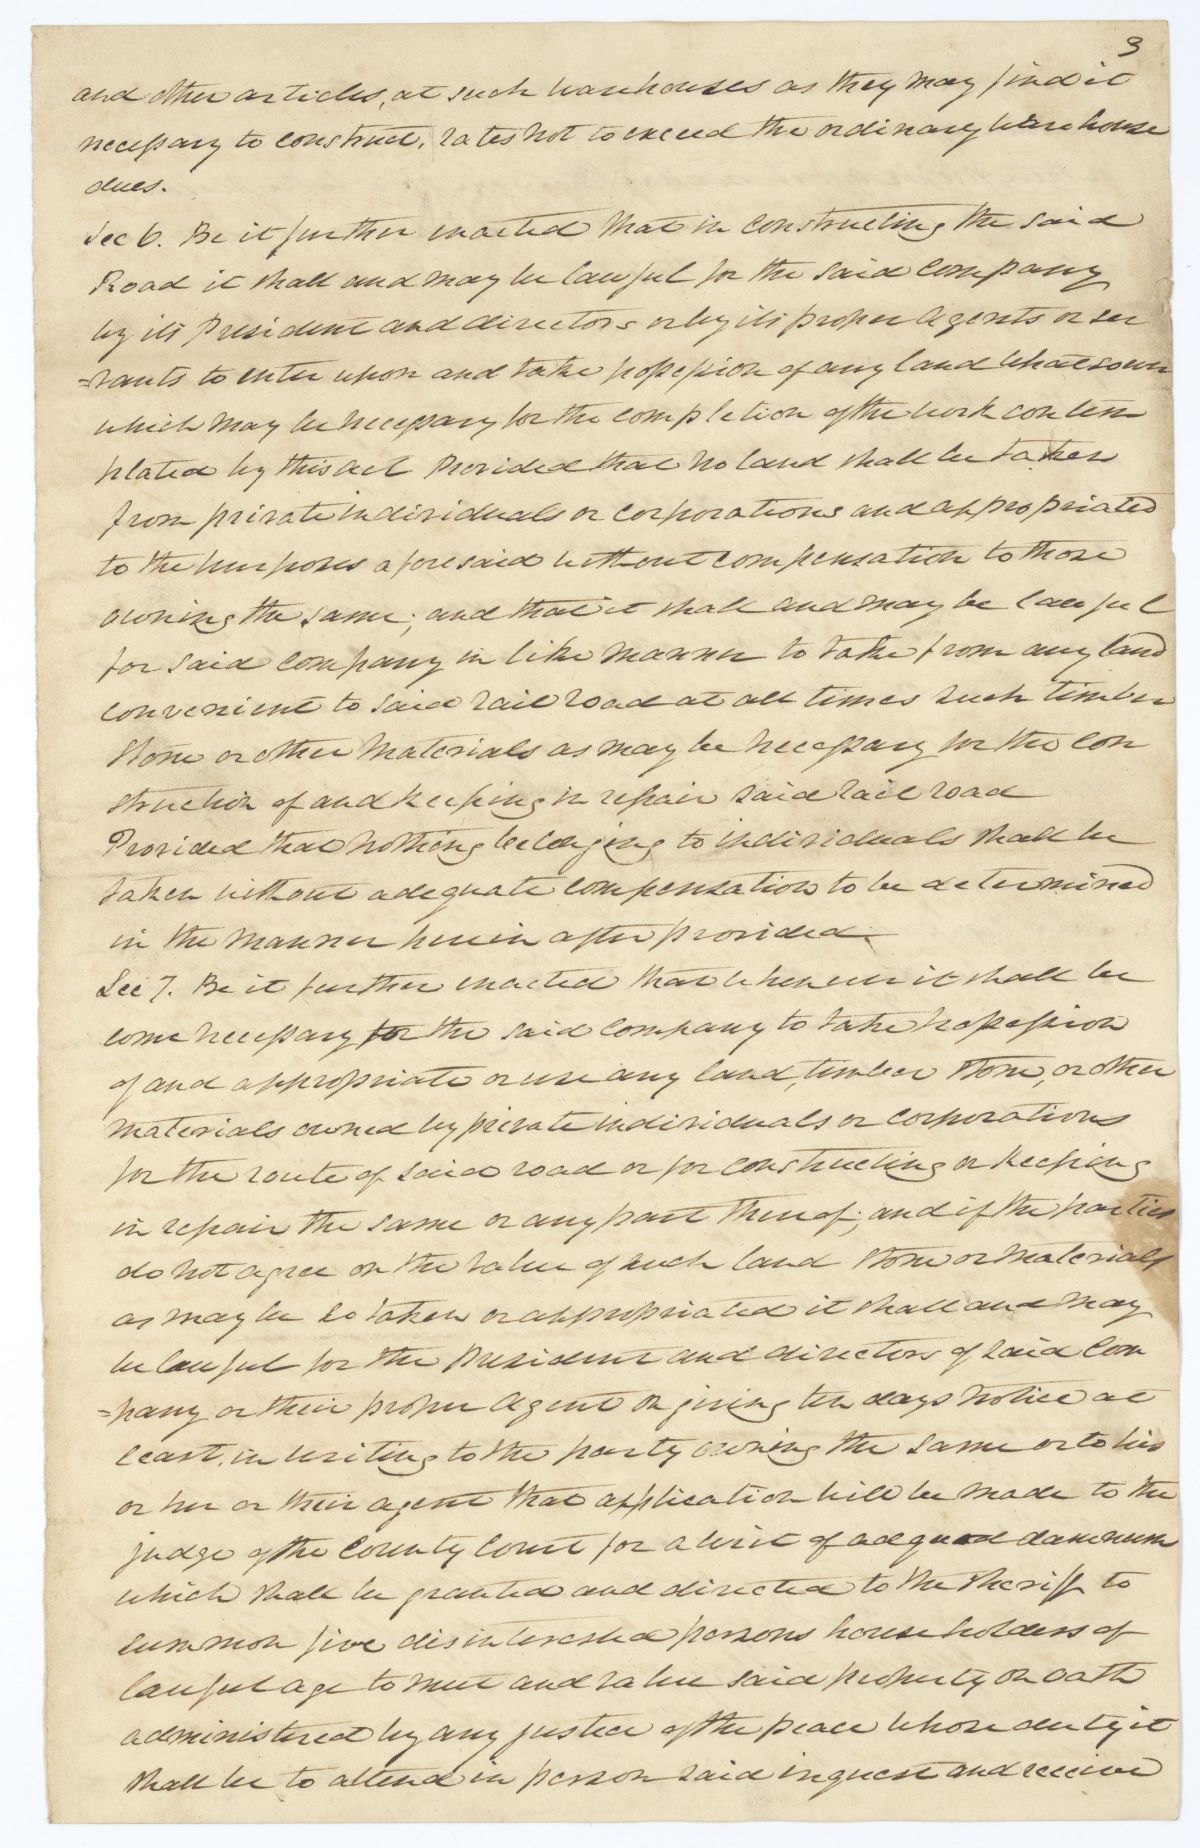 3
and other articles, at such warehouses as they may find it
necessary to construct, rates not to exceed the ordinary warehouse
dues.
Sec 6. Be it further enacted that in constructing the said
Road it shall and may be lawful for the said company
by its President and directors or by its proper agents or ser
=vants to enter upon and take possession of any land whatsoever
which may be necessary for the completion of the work contem
plated by this act Provided that no land shall be taken
from private individuals or corporations and appropriated
to the purposes aforesaid without compensation to those
owning the same; and that it shall and may be lawful
for said company in like manner to take from any land
convenient to said rail road at all times such timber
stone or other materials as may be necessary for the con
struction of and keeping in repair said rail road
Provided that nothing belonging to individuals shall be
taken without adequate compensation to be determined
in the manner herein after provided.
Sec 7. Be it further enacted that whenever it shall be
come necessary for the said company to take possession
of and appropriate or use any land, timber stone, or other
materials owned by private individuals or corporations
for the route of said road or for constructing or keeping
in repair the same or any part thereof; and if the parties
do not agree on the value of such land stone or materials
as may be so taken or appropriated it shall and may
be lawful for the President and directors of said Com
=pany or their proper Agent on giving ten days notice at
least, in writing to the party owning the same or to his
or her or their agent that application will be made to the
judge of the County Court for a writ of ad quod damnum
which shall be granted and directed to the sheriff to
summon five disinterested persons householders of
lawful age to meet and value said property on oath
administered by any justice of the peace whose duty it
shall be to attend in person said inquest and receive